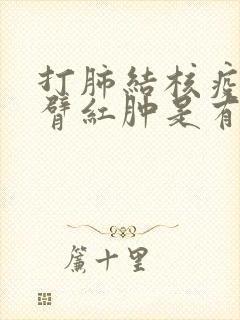 打肺結核疫
臂紅肿是有
簾十里